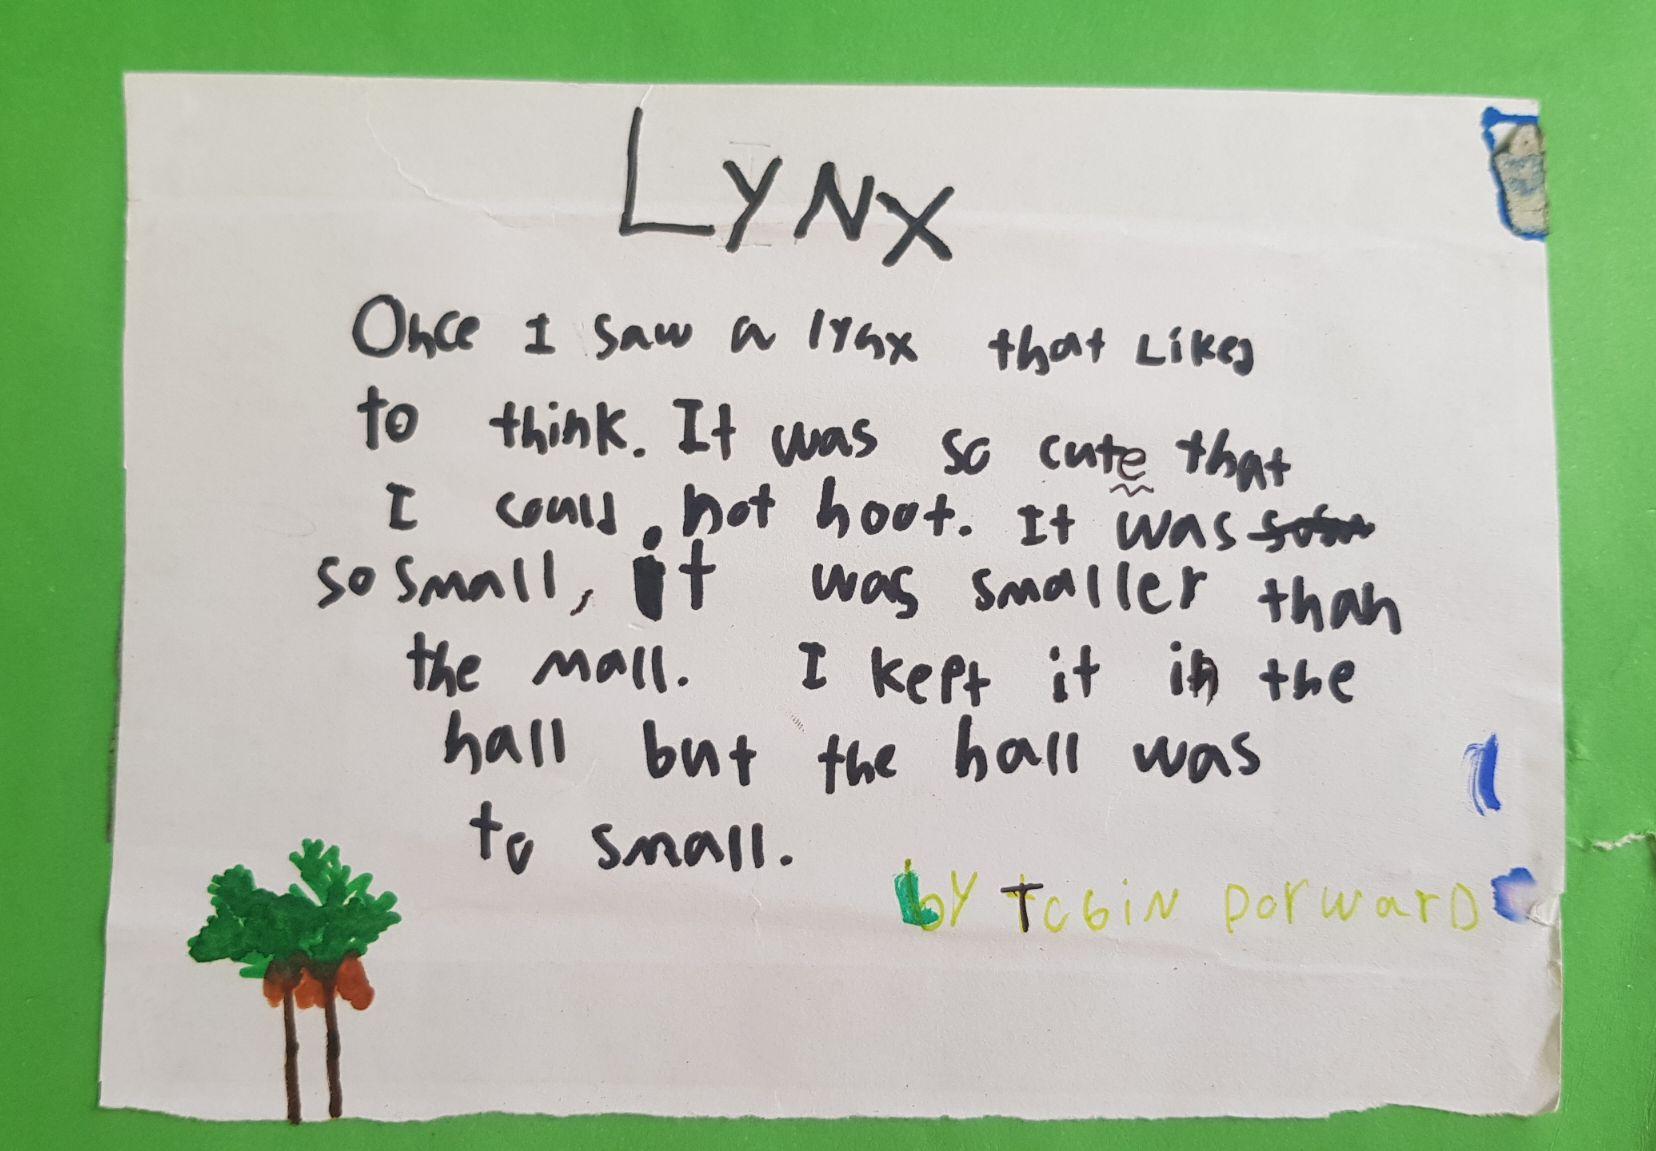 LYNX
Once I saw a lynx that Likes
to think. It was so cute that
I could not hoot. It was
so small, it was smaller than
the mall. I kept it in the
hall but the hall was
to small.
by Tobin Dorward